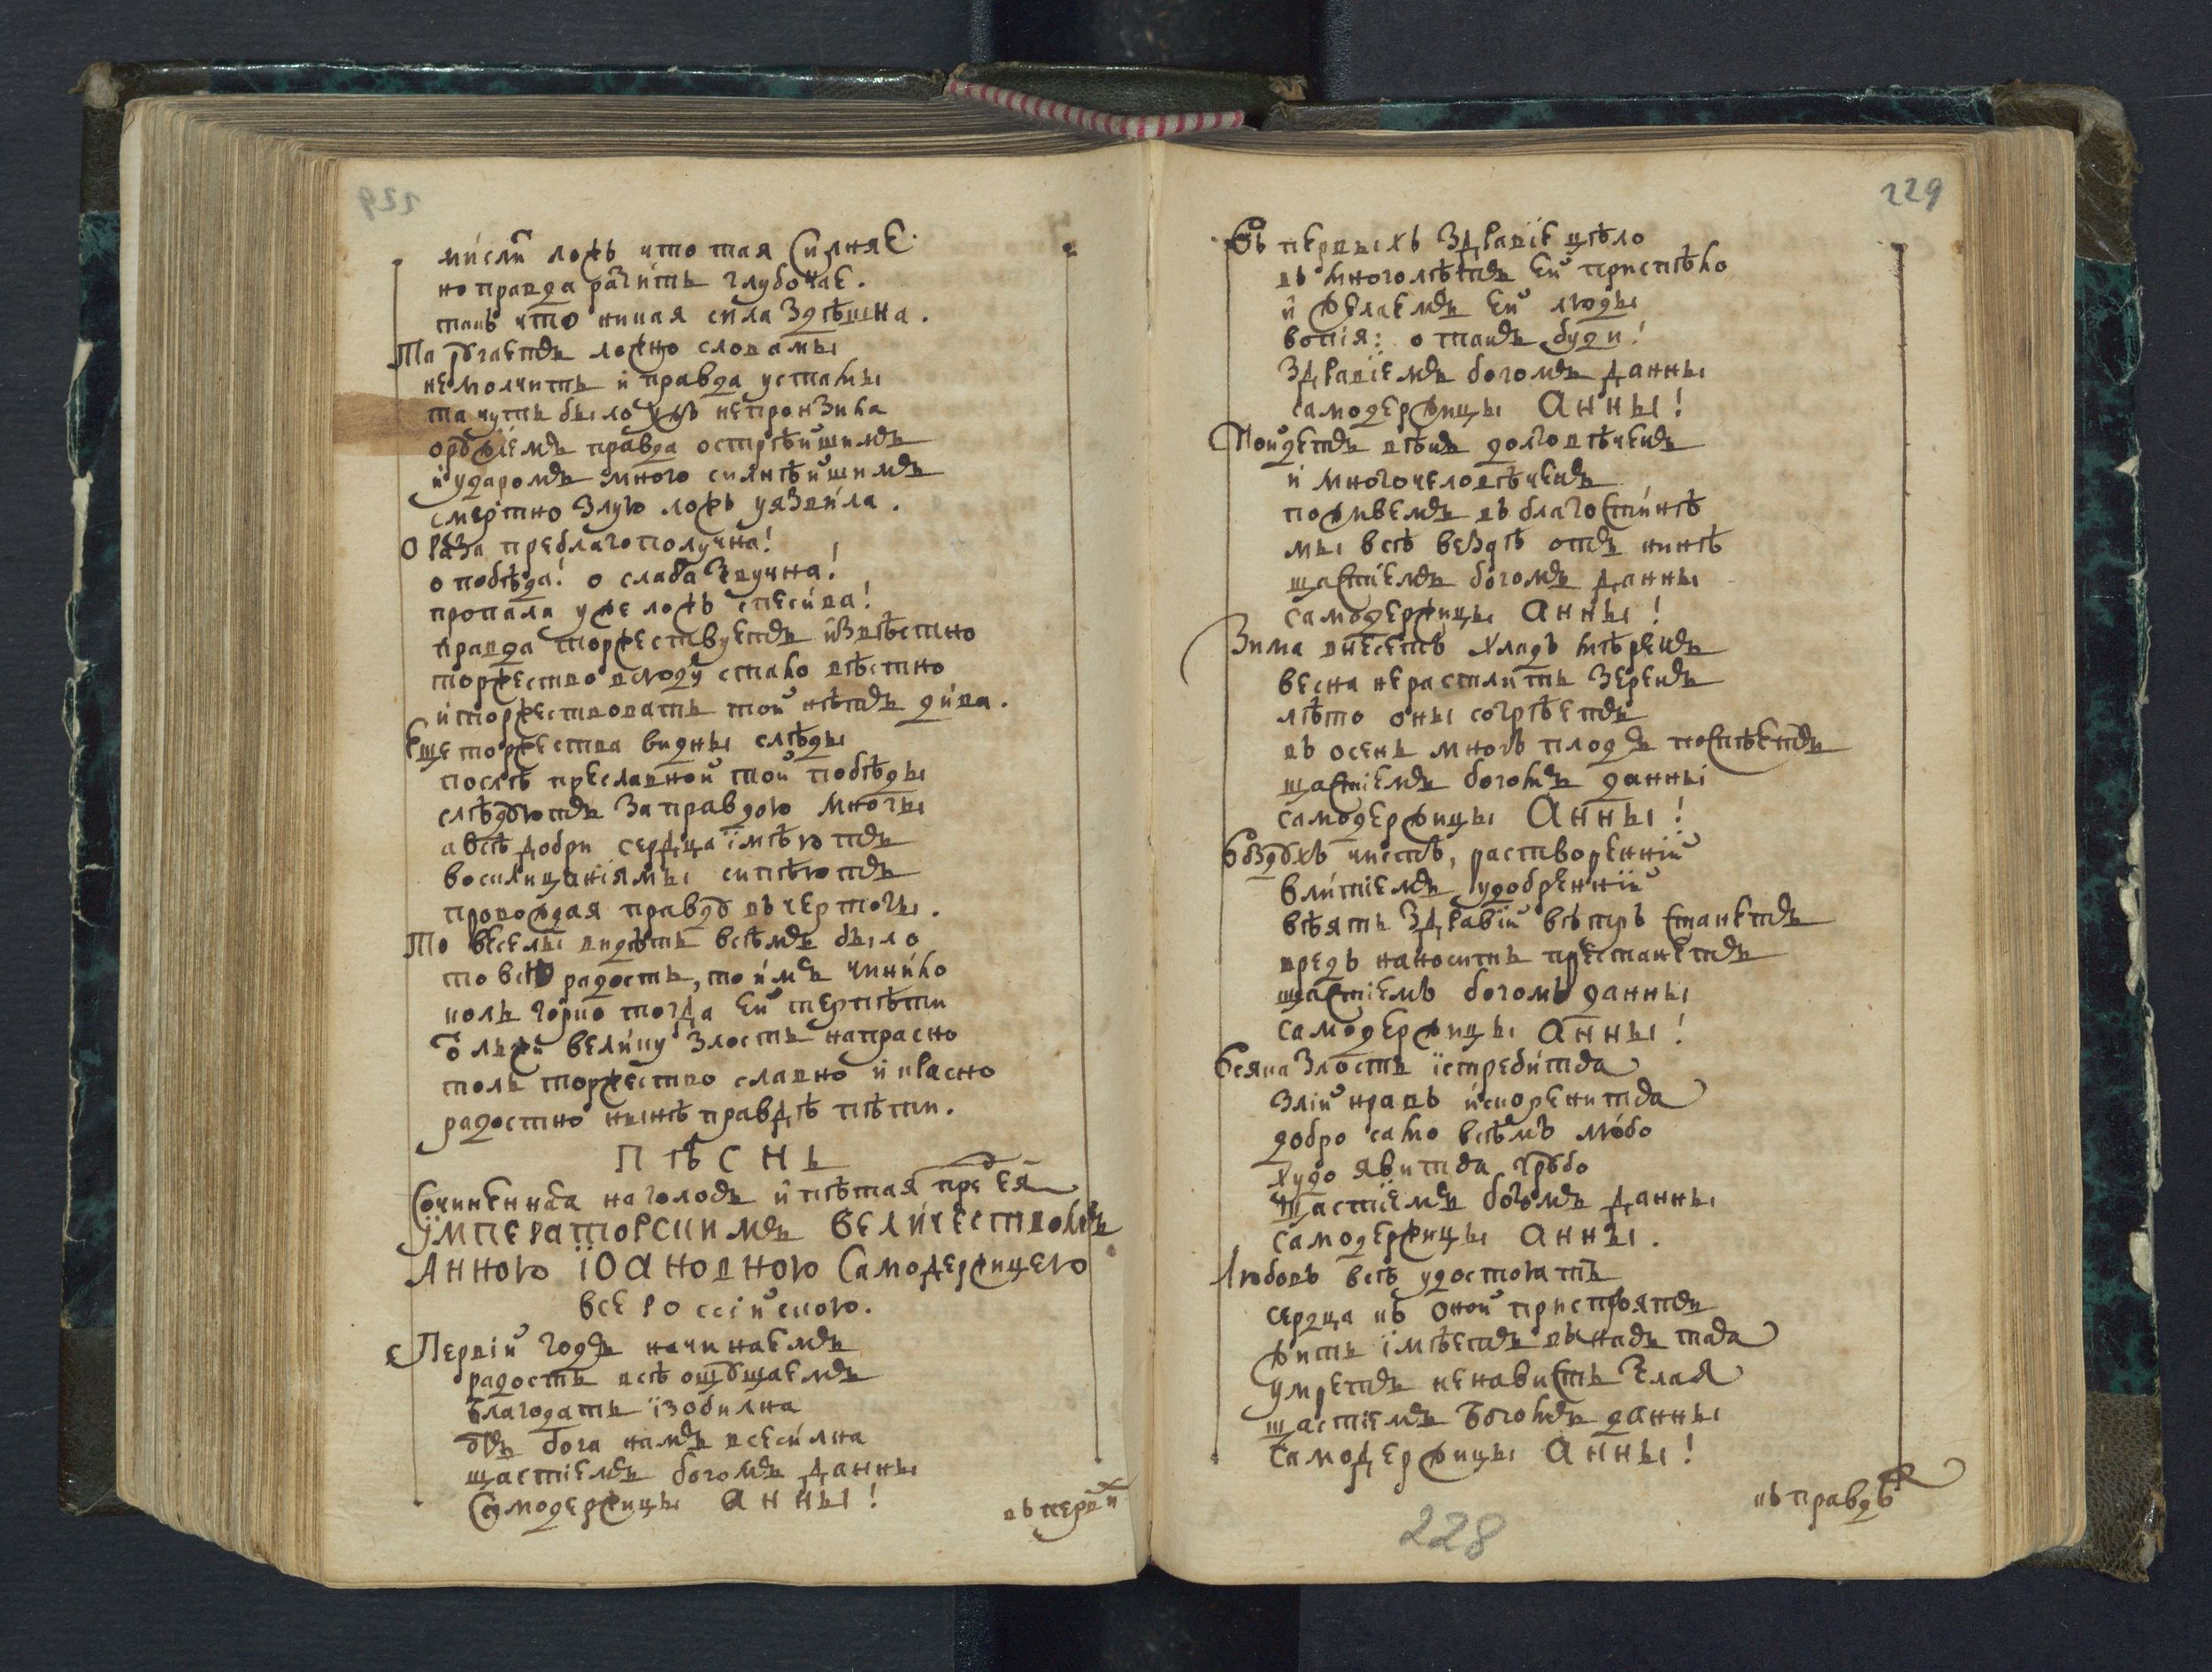 мислѝ ложь что тая силняе
но правда разить глубочае.
такъ что никая сила здѣшна.
Та ругаетъ ложно словамы
не молчить и правда устамы
та чуть было ихъ непронзика
орꙋжіемъ правда острѣйшимъ
и ударомъ много силнѣйшимъ
смертно злую ложь уязвила.
О раза преблагополучна!
о побѣда! о слава звучна!
пропала уже ложь спесива!
правда торжествуетъ извѣстно
торжество всюду стало вѣстно
и торжествовать той нѣтъ дива.
Еще торжества видны слѣды
послѣ преславной той побѣды
слѣдꙋютъ за правдою многы
а всѣ добри сердца имѣютъ
восклицаніямы спѣютъ
провождая правдꙋ въ чертогы.
То веселы видѣть всѣмъ было
то всю радость, то имъ чинило
коль горко тогда ей терпѣти
о лжи велику злость напрасно
толь торжество славно и красно
радостно нынѣ правдѣ пѣти.
ПѢСНЬ
Сочиненная на голосъ и пѣтая пред ея
імператорскимъ величествомъ
Анною Іоановною Самодержицею
всероссійскою.
Первій годъ начинаемъ
радость всѣ ощꙋщаемъ
благодать ізобилна
ѿ бога намъ всесилна
щастіемъ богомъ данны
Самодержицы Анны!
въ первых
229
Въ первыхъ здравіе цѣло
въ многолѣтъ ей приспѣло
и желаемъ ей люды
вопія: о такъ буди!
здравіемъ богомъ данны
самодержицы Анны!
Пойдетъ вѣкъ долговѣченъ
и многочеловѣченъ
поживемъ въ благостинѣ
мы всѣ вездѣ отъ нинѣ
щастіемъ богомъ данны
самодержицы Анны!
Зима внесетъ хладъ мѣренъ
весна нерастлить зеренъ
лѣто оны согрѣетъ
въ осень многъ плодъ поспѣетъ
щастіемъ богомъ данны
самодержицы Анны!
Воздꙋхъ чистъ, растворенній
влитіемъ удобренній
вѣять здравій вѣтръ станетъ
вредъ наносить престанетъ
щастіемъ богомъ данны
самодержицы Анны!
Всяка злость істребится
злій нравъ искоренится
добро само всѣмъ любо
худо явится грꙋбо
щастіемъ богомъ данны
самодержицы Анны.
Любовь всѣ удостоятъ
сердца къ оной пристроятъ
жить імѣетъ въ насъ тая
умретъ ненависть злая
щастіемъ богомъ данны
Самодержицы Анны!
къ правдѣ
228